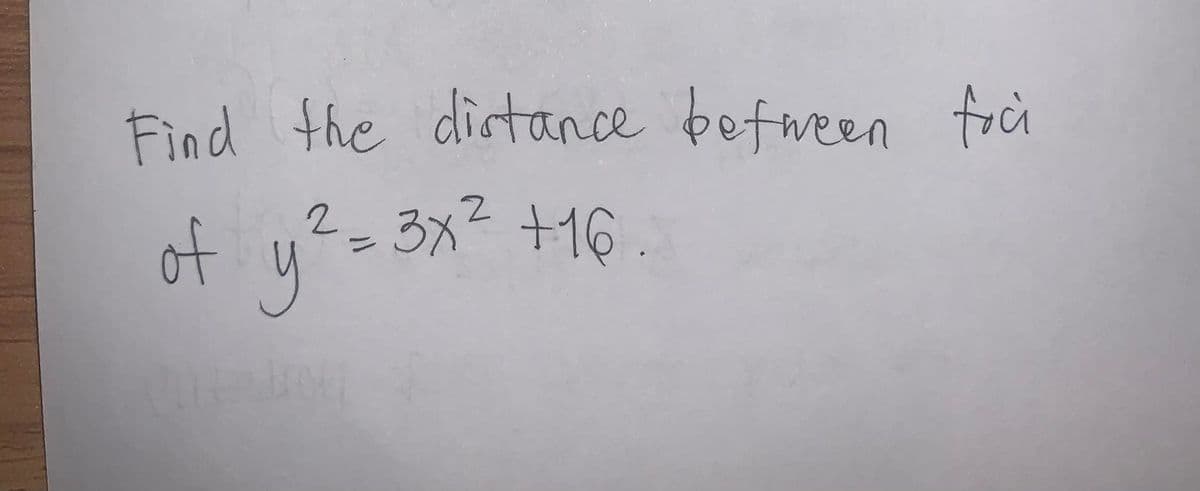 Find the distance between foci
of y² = 3x² +16.